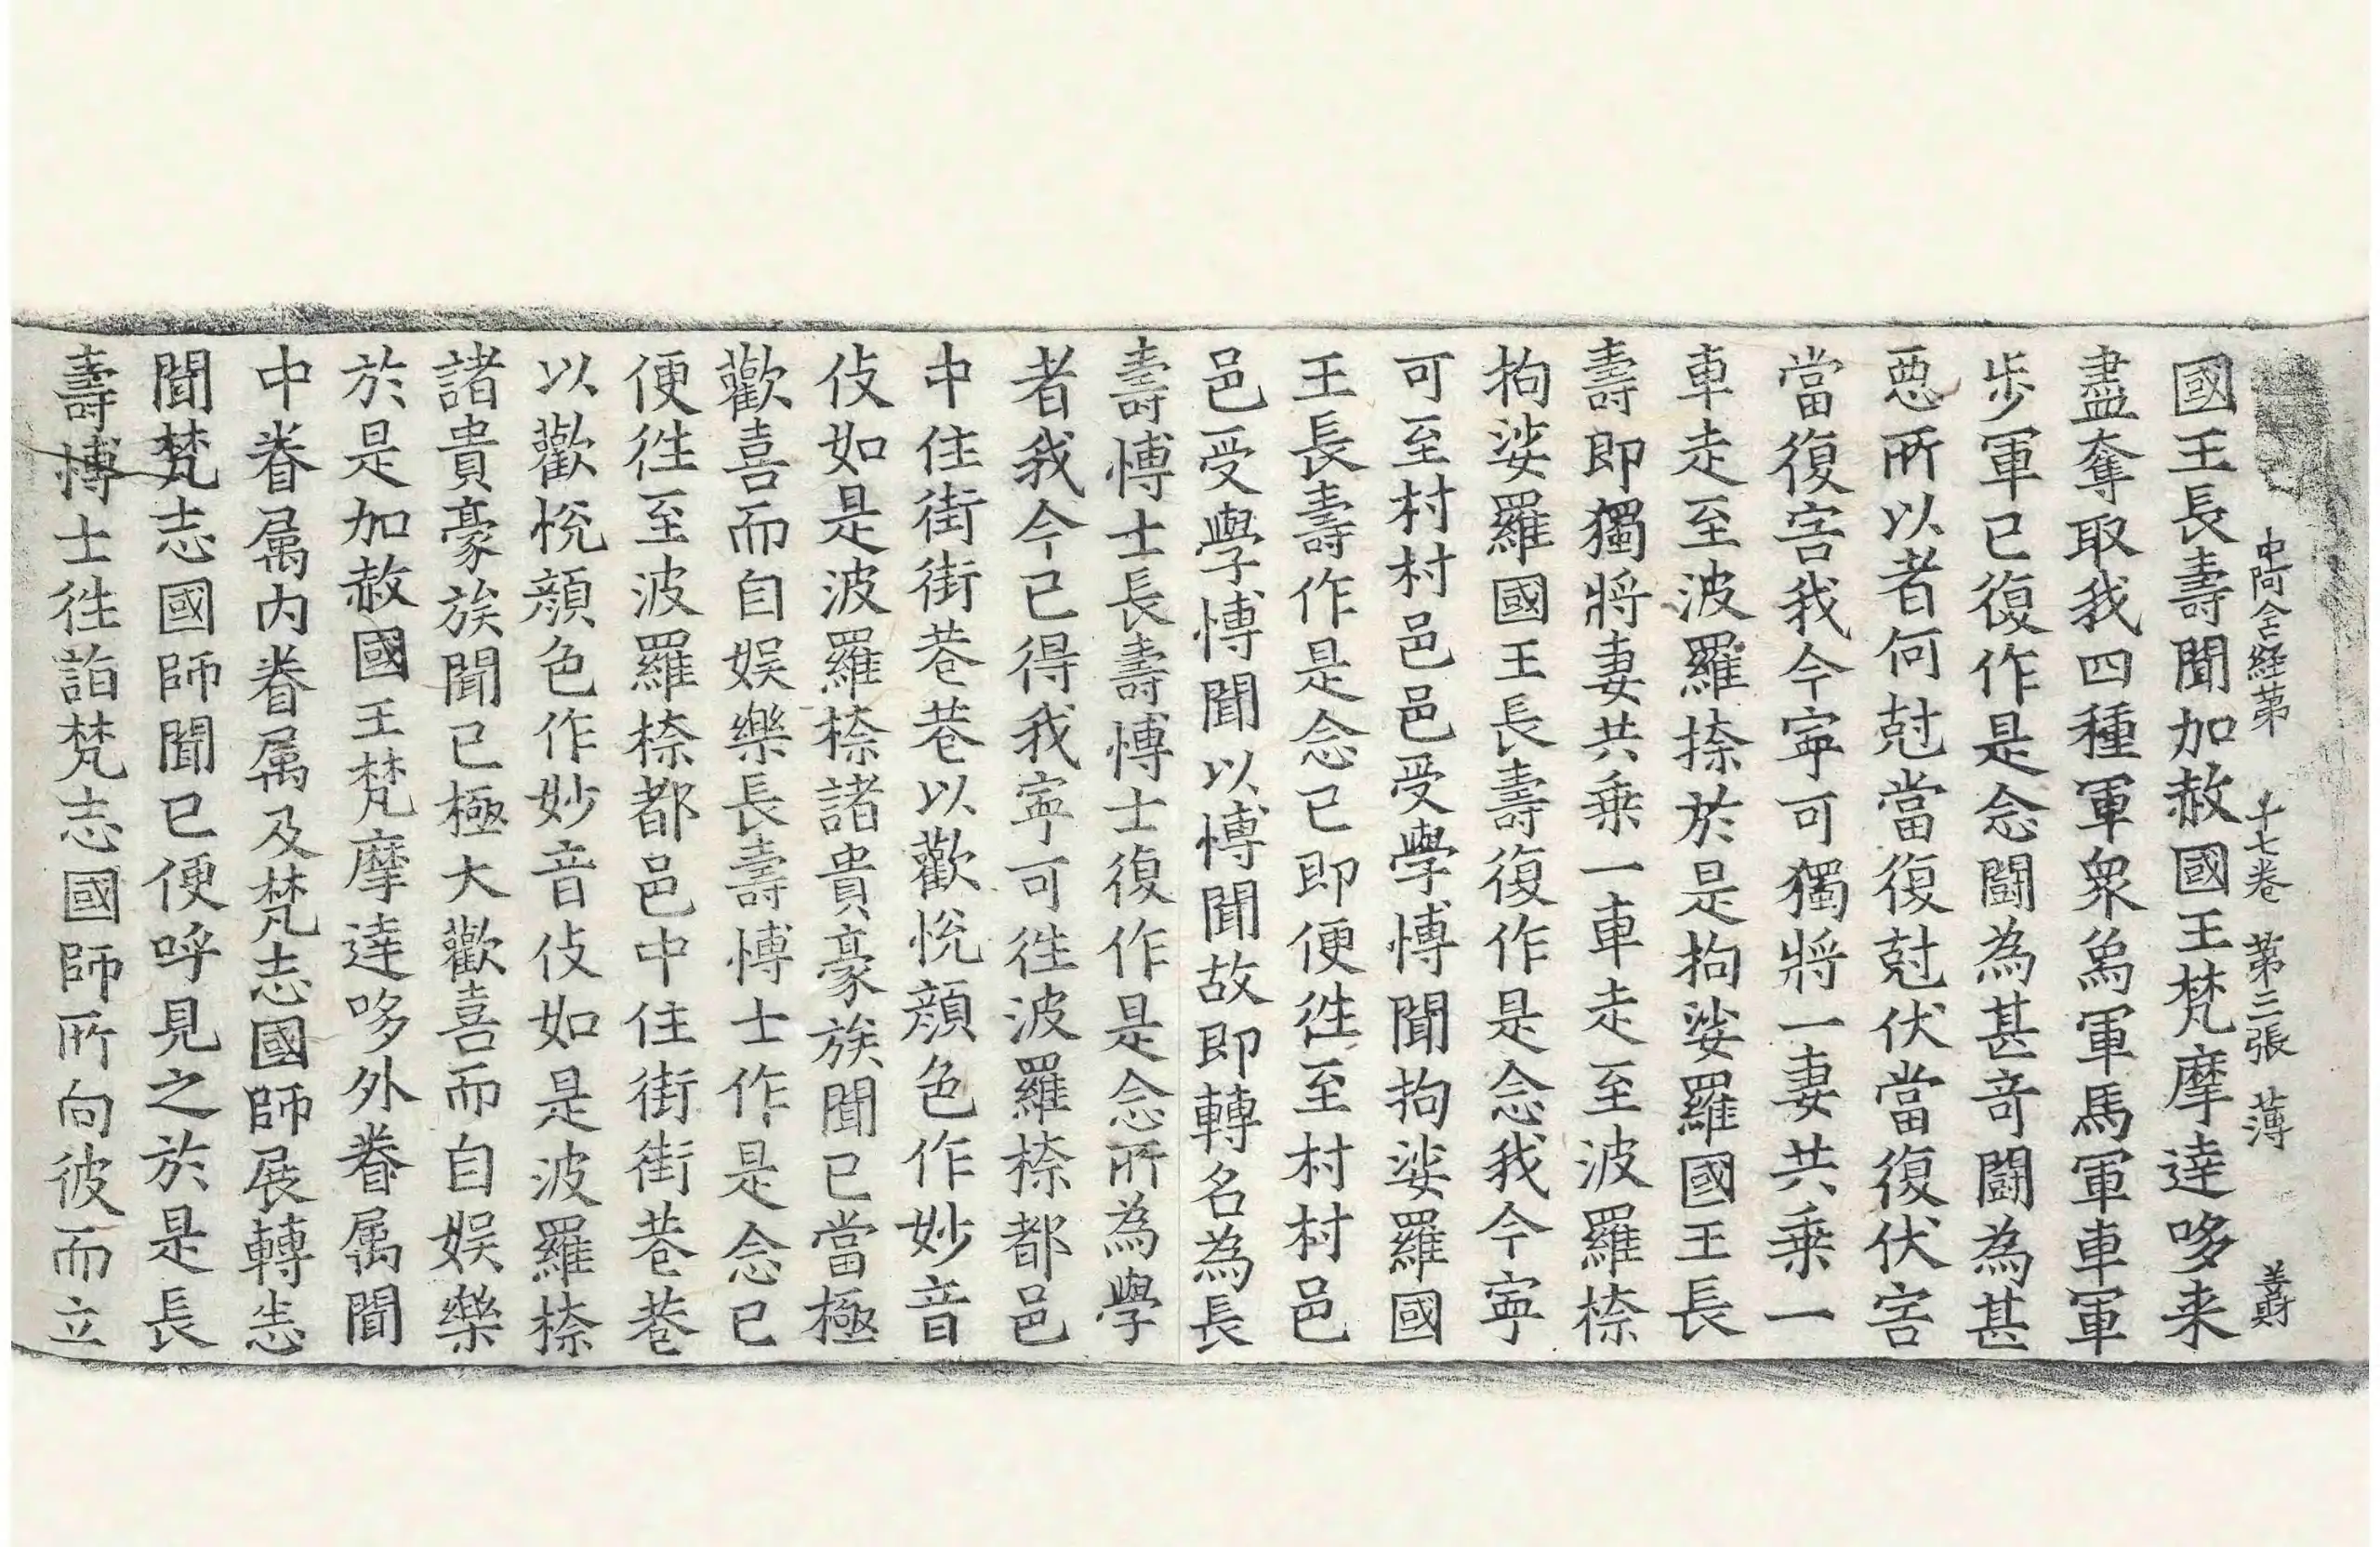 中阿含経第十七卷 第三張 薄 善財
國王長壽聞加赦國王梵摩達哆来
盡奪取我四種軍衆象軍馬軍車軍
步軍已復作是念鬪為甚竒鬪為甚
惡所以者何尅當復尅伏當復伏害
當復害我今寧可獨將一妻共乗一
車走至波羅㮈於是拘娑羅國王長
壽即獨將妻共乗一車走至波羅㮈
拘娑羅國王長壽復作是念我今寧
可至村村邑邑受學博聞拘娑羅國
王長壽作是念已即便徃至村村邑
邑受學博聞以博聞故即轉名為長
壽博士長壽博士復作是念所為學
者我今已得我寧可徃波羅㮈都邑
中住街街巷巷以歡悅顔色作妙音
伎如是波羅㮈諸貴豪族聞已當極
歡喜而自娱樂長壽博士作是念已
便徃至波羅㮈都邑中住街街巷巷
以歡悅顔色作妙音伎如是波羅㮈
諸貴豪族聞已極大歡喜而自娱樂
於是加赦國王梵摩達哆外眷属聞
中眷属内眷属及梵志國師展轉悉
聞梵志國師聞已便呼見之於是長
壽博士徃詣梵志國師所向彼而立